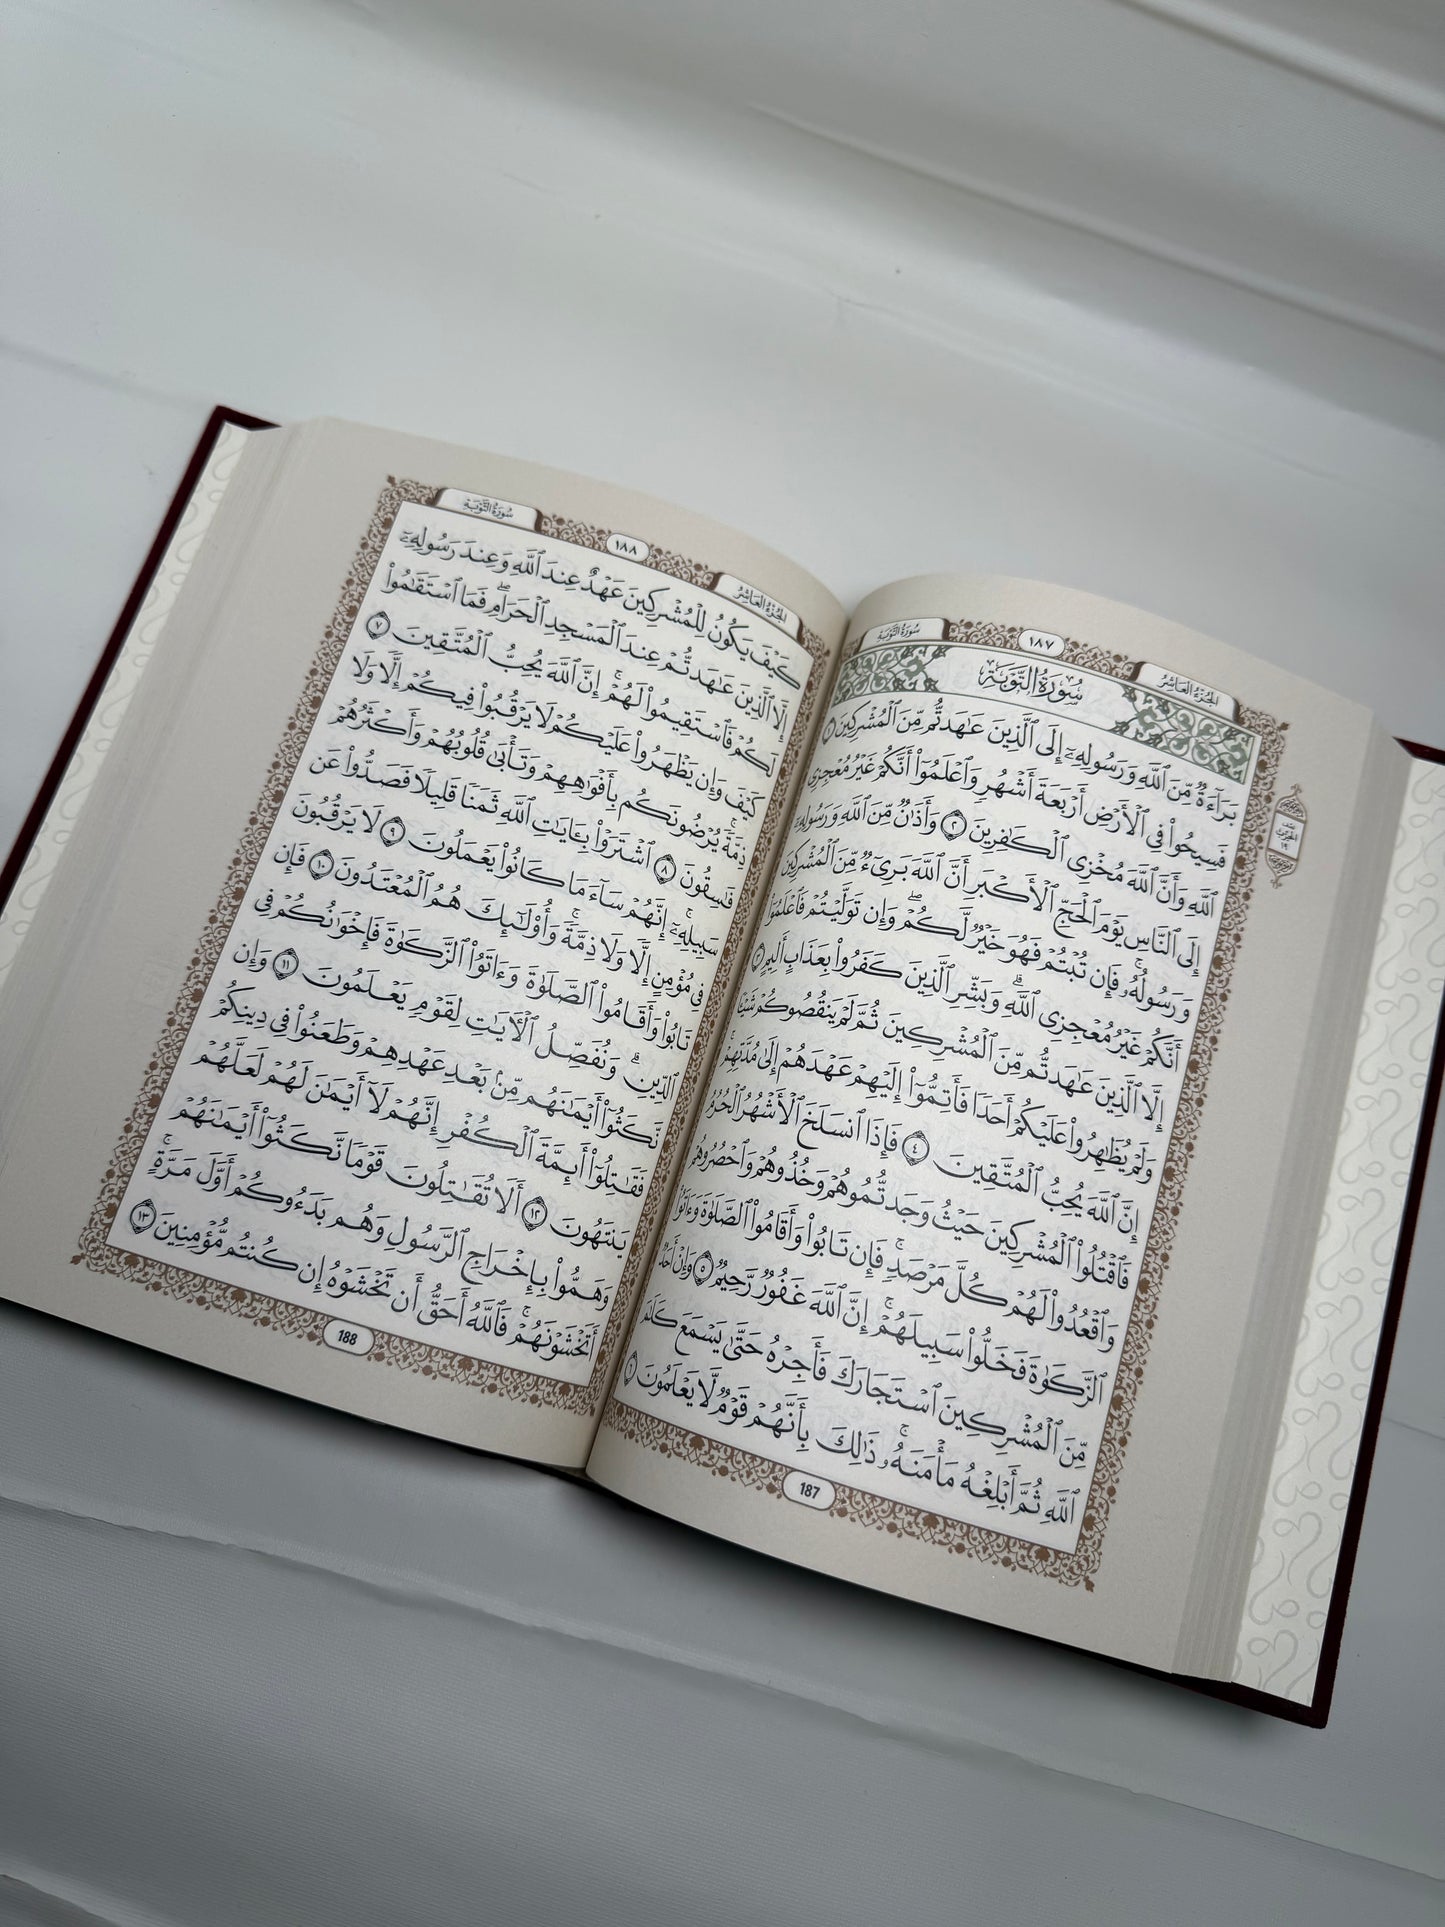 سُورَةُ التَّوْبَةِ
١٨٧
الجُزْءُ العَاشِرُ
سُورَةُ التَّوْبَةِ
بَرَآءَةٌ مِّنَ ٱللَّهِ وَرَسُولِهِۦٓ إِلَى ٱلَّذِينَ عَٰهَدتُّم مِّنَ ٱلْمُشْرِكِينَ ١
فَسِيحُوا۟ فِى ٱلْأَرْضِ أَرْبَعَةَ أَشْهُرٍ وَٱعْلَمُوٓا۟ أَنَّكُمْ غَيْرُ مُعْجِزِى
ٱللَّهِ وَأَنَّ ٱللَّهَ مُخْزِى ٱلْكَٰفِرِينَ ٢ وَأَذَٰنٌ مِّنَ ٱللَّهِ وَرَسُولِهِۦٓ
إِلَى ٱلنَّاسِ يَوْمَ ٱلْحَجِّ ٱلْأَكْبَرِ أَنَّ ٱللَّهَ بَرِىٓءٌ مِّنَ ٱلْمُشْرِكِينَ
وَرَسُولُهُۥ فَإِن تُبْتُمْ فَهُوَ خَيْرٌ لَّكُمْ وَإِن تَوَلَّيْتُمْ فَٱعْلَمُوٓا۟
أَنَّكُمْ غَيْرُ مُعْجِزِى ٱللَّهِ وَبَشِّرِ ٱلَّذِينَ كَفَرُوا۟ بِعَذَابٍ أَلِيمٍ ٣
إِلَّا ٱلَّذِينَ عَٰهَدتُّم مِّنَ ٱلْمُشْرِكِينَ ثُمَّ لَمْ يَنقُصُوكُمْ شَيْـًٔا
وَلَمْ يُظَٰهِرُوا۟ عَلَيْكُمْ أَحَدًا فَأَتِمُّوٓا۟ إِلَيْهِمْ عَهْدَهُمْ إِلَىٰ مُدَّتِهِمْ
إِنَّ ٱللَّهَ يُحِبُّ ٱلْمُتَّقِينَ ٤ فَإِذَا ٱنسَلَخَ ٱلْأَشْهُرُ ٱلْحُرُمُ
فَٱقْتُلُوا۟ ٱلْمُشْرِكِينَ حَيْثُ وَجَدتُّمُوهُمْ وَخُذُوهُمْ وَٱحْصُرُوهُمْ
وَٱقْعُدُوا۟ لَهُمْ كُلَّ مَرْصَدٍ فَإِن تَابُوا۟ وَأَقَامُوا۟ ٱلصَّلَوٰةَ وَءَاتَوُا۟
ٱلزَّكَوٰةَ فَخَلُّوا۟ سَبِيلَهُمْ إِنَّ ٱللَّهَ غَفُورٌ رَّحِيمٌ ٥ وَإِنْ أَحَدٌ
مِّنَ ٱلْمُشْرِكِينَ ٱسْتَجَارَكَ فَأَجِرْهُ حَتَّىٰ يَسْمَعَ كَلَٰمَ
ٱللَّهِ ثُمَّ أَبْلِغْهُ مَأْمَنَهُۥ ذَٰلِكَ بِأَنَّهُمْ قَوْمٌ لَّا يَعْلَمُونَ ٦
187
سُورَةُ التَّوْبَةِ
١٨٨
الجُزْءُ العَاشِرُ
كَيْفَ يَكُونُ لِلْمُشْرِكِينَ عَهْدٌ عِندَ ٱللَّهِ وَعِندَ رَسُولِهِۦٓ
إِلَّا ٱلَّذِينَ عَٰهَدتُّمْ عِندَ ٱلْمَسْجِدِ ٱلْحَرَامِ فَمَا ٱسْتَقَٰمُوا۟
لَكُمْ فَٱسْتَقِيمُوا۟ لَهُمْ إِنَّ ٱللَّهَ يُحِبُّ ٱلْمُتَّقِينَ ٧
كَيْفَ وَإِن يَظْهَرُوا۟ عَلَيْكُمْ لَا يَرْقُبُوا۟ فِيكُمْ إِلًّا وَلَا
ذِمَّةً يُرْضُونَكُم بِأَفْوَٰهِهِمْ وَتَأْبَىٰ قُلُوبُهُمْ وَأَكْثَرُهُمْ
فَٰسِقُونَ ٨ ٱشْتَرَوْا۟ بِـَٔايَٰتِ ٱللَّهِ ثَمَنًا قَلِيلًا فَصَدُّوا۟ عَن
سَبِيلِهِۦٓ إِنَّهُمْ سَآءَ مَا كَانُوا۟ يَعْمَلُونَ ٩ لَا يَرْقُبُونَ
فِى مُؤْمِنٍ إِلًّا وَلَا ذِمَّةً وَأُو۟لَٰٓئِكَ هُمُ ٱلْمُعْتَدُونَ ١٠ فَإِن
تَابُوا۟ وَأَقَامُوا۟ ٱلصَّلَوٰةَ وَءَاتَوُا۟ ٱلزَّكَوٰةَ فَإِخْوَٰنُكُمْ فِى
ٱلدِّينِ وَنُفَصِّلُ ٱلْـَٔايَٰتِ لِقَوْمٍ يَعْلَمُونَ ١١ وَإِن
نَّكَثُوٓا۟ أَيْمَٰنَهُم مِّنۢ بَعْدِ عَهْدِهِمْ وَطَعَنُوا۟ فِى دِينِكُمْ
فَقَٰتِلُوٓا۟ أَئِمَّةَ ٱلْكُفْرِ إِنَّهُمْ لَآ أَيْمَٰنَ لَهُمْ لَعَلَّهُمْ
يَنتَهُونَ ١٢ أَلَا تُقَٰتِلُونَ قَوْمًا نَّكَثُوٓا۟ أَيْمَٰنَهُمْ
وَهَمُّوا۟ بِإِخْرَاجِ ٱلرَّسُولِ وَهُم بَدَءُوكُمْ أَوَّلَ مَرَّةٍ
أَتَخْشَوْنَهُمْ فَٱللَّهُ أَحَقُّ أَن تَخْشَوْهُ إِن كُنتُم مُّؤْمِنِينَ ١٣
188